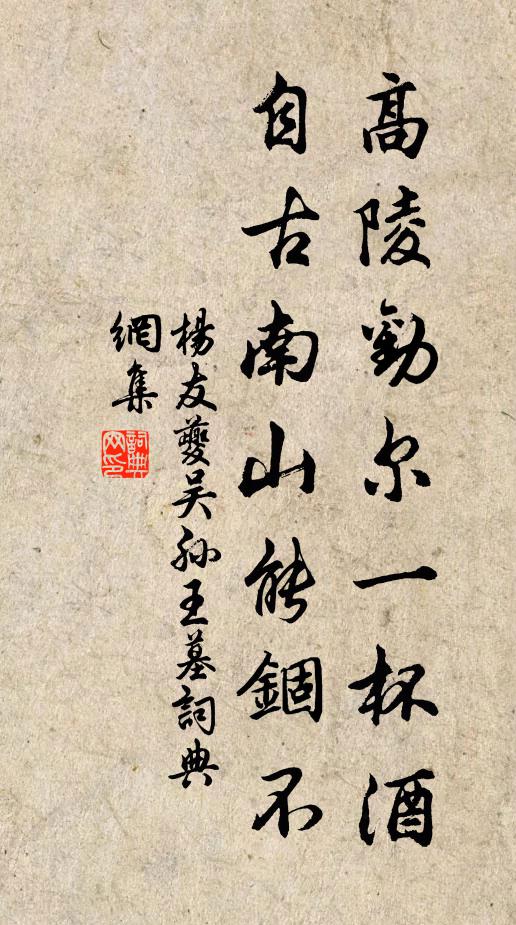 高陵勸尔一杯酒
自古南山能錮不
楊友夔吴孙王墓詞典
網集
詞典網印